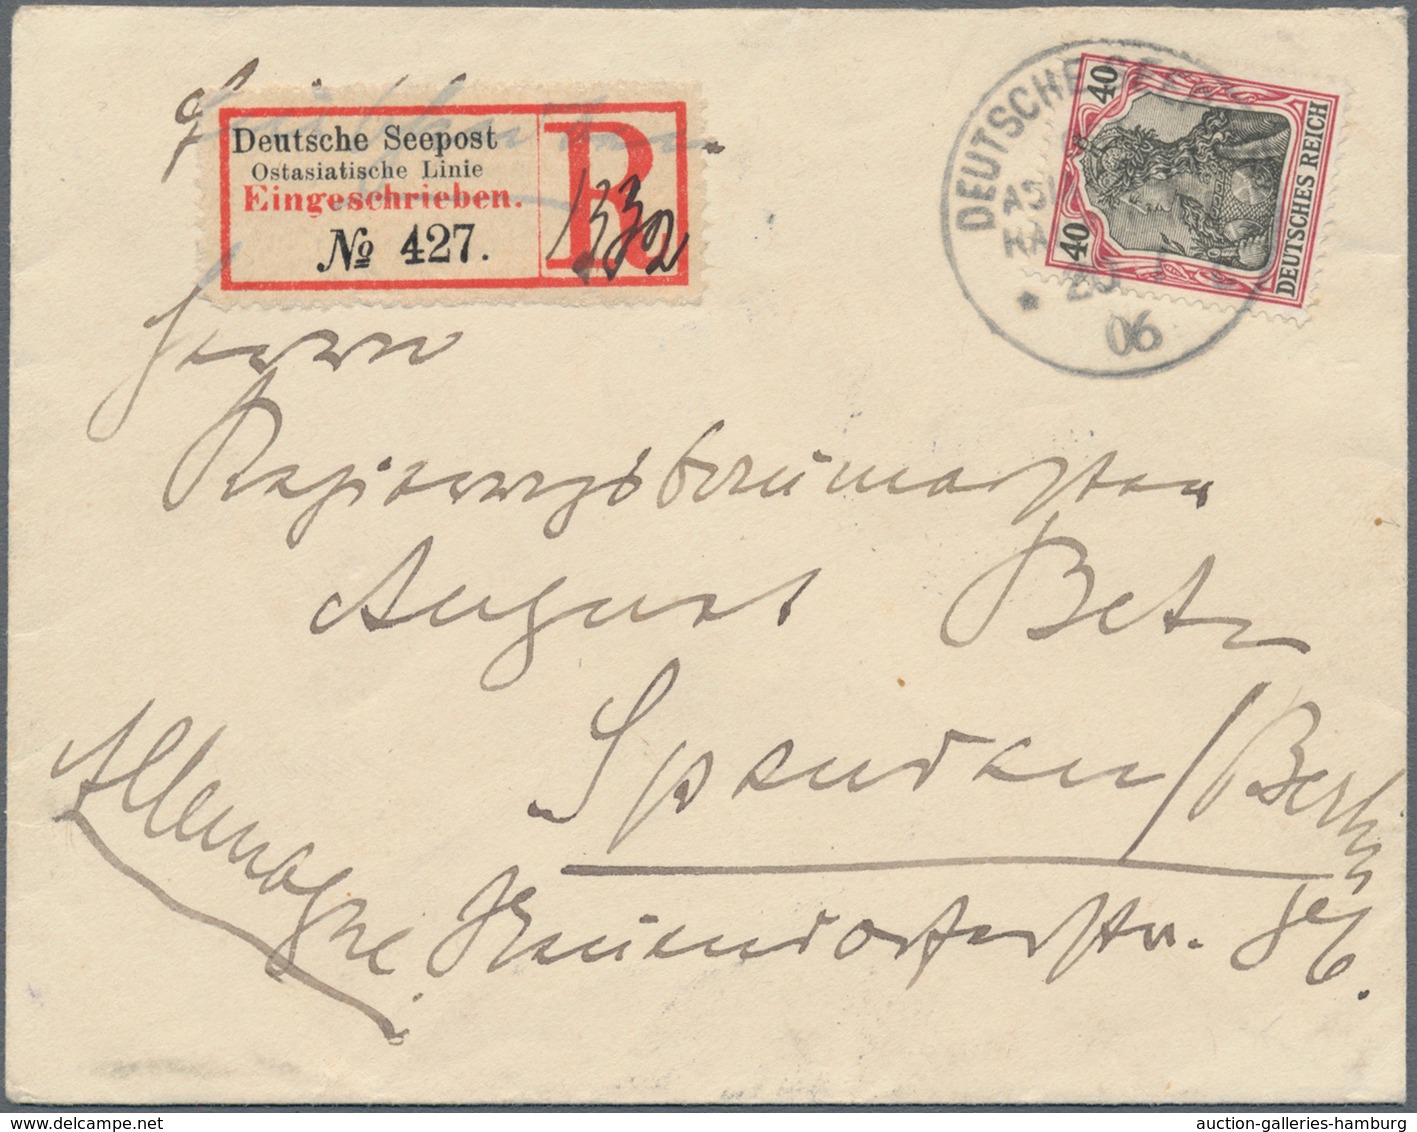 Deutsche Seepost
Ostasiatische Linie
Eingeschrieben.
№ 427.
R
1332
DEUTSCHE SEEPOST
40
40
DEUTSCHES REICH
06
Herrn
Regierungsbaumeister
August Betz
Spandau/Berlin
Allemagne
Neuendorferstr.
auction-galleries-hamburg